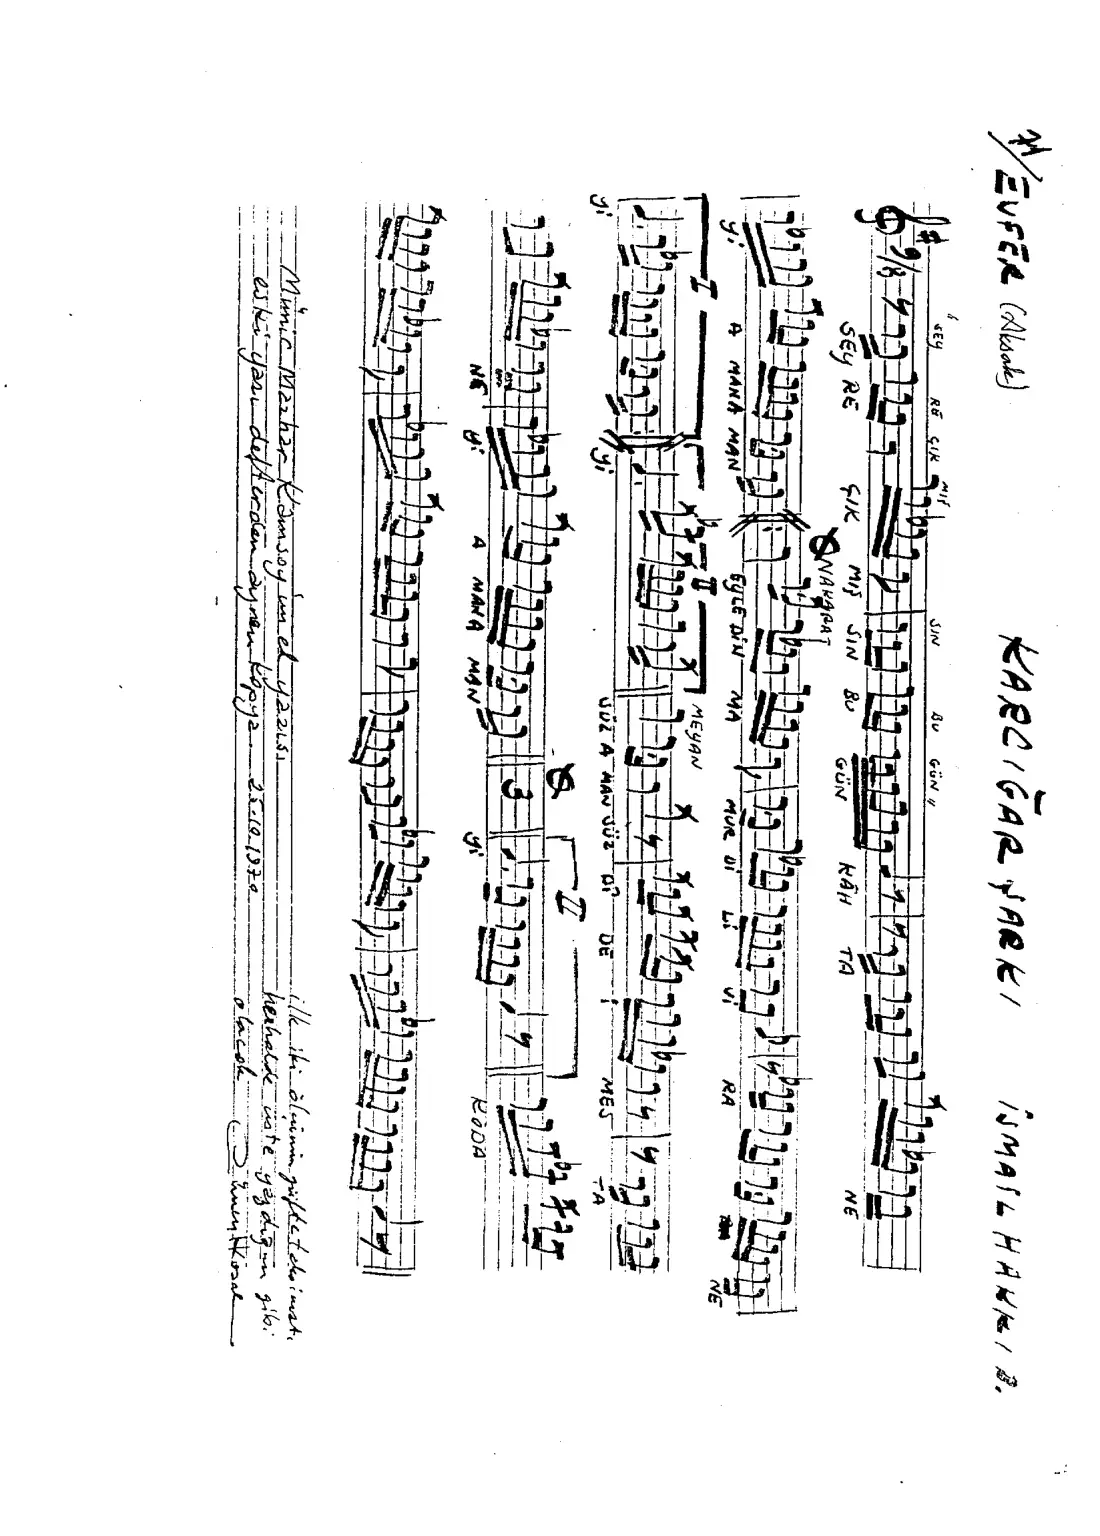 71/EVFER (Aksak) KARCIĞAR ŞARKI İSMAİL HAKKI B.
" SEY RE ÇIK MIŞ SIN BU GÜN "
9/8
SEY RE ÇIK MIŞ SIN BU GÜN KÂH TA NE
NAKARAT
Yİ A MANA MAN EYLEDİN MA MUR Dİ Lİ Vİ RA NE
I II MEYAN
Yİ Yİ SÜZ A MAN SÜZ Dİ DE İ MES TA
II
NE Yİ A MANA MAN 3 Yİ KODA
Münir Mazhar Kamsoy'un el yazısı
eski yazı defterden aynen kopya 25.10.1970
ilk iki ölçünün güfte taksimatı
herhalde üste yazdığım gibi
olacak